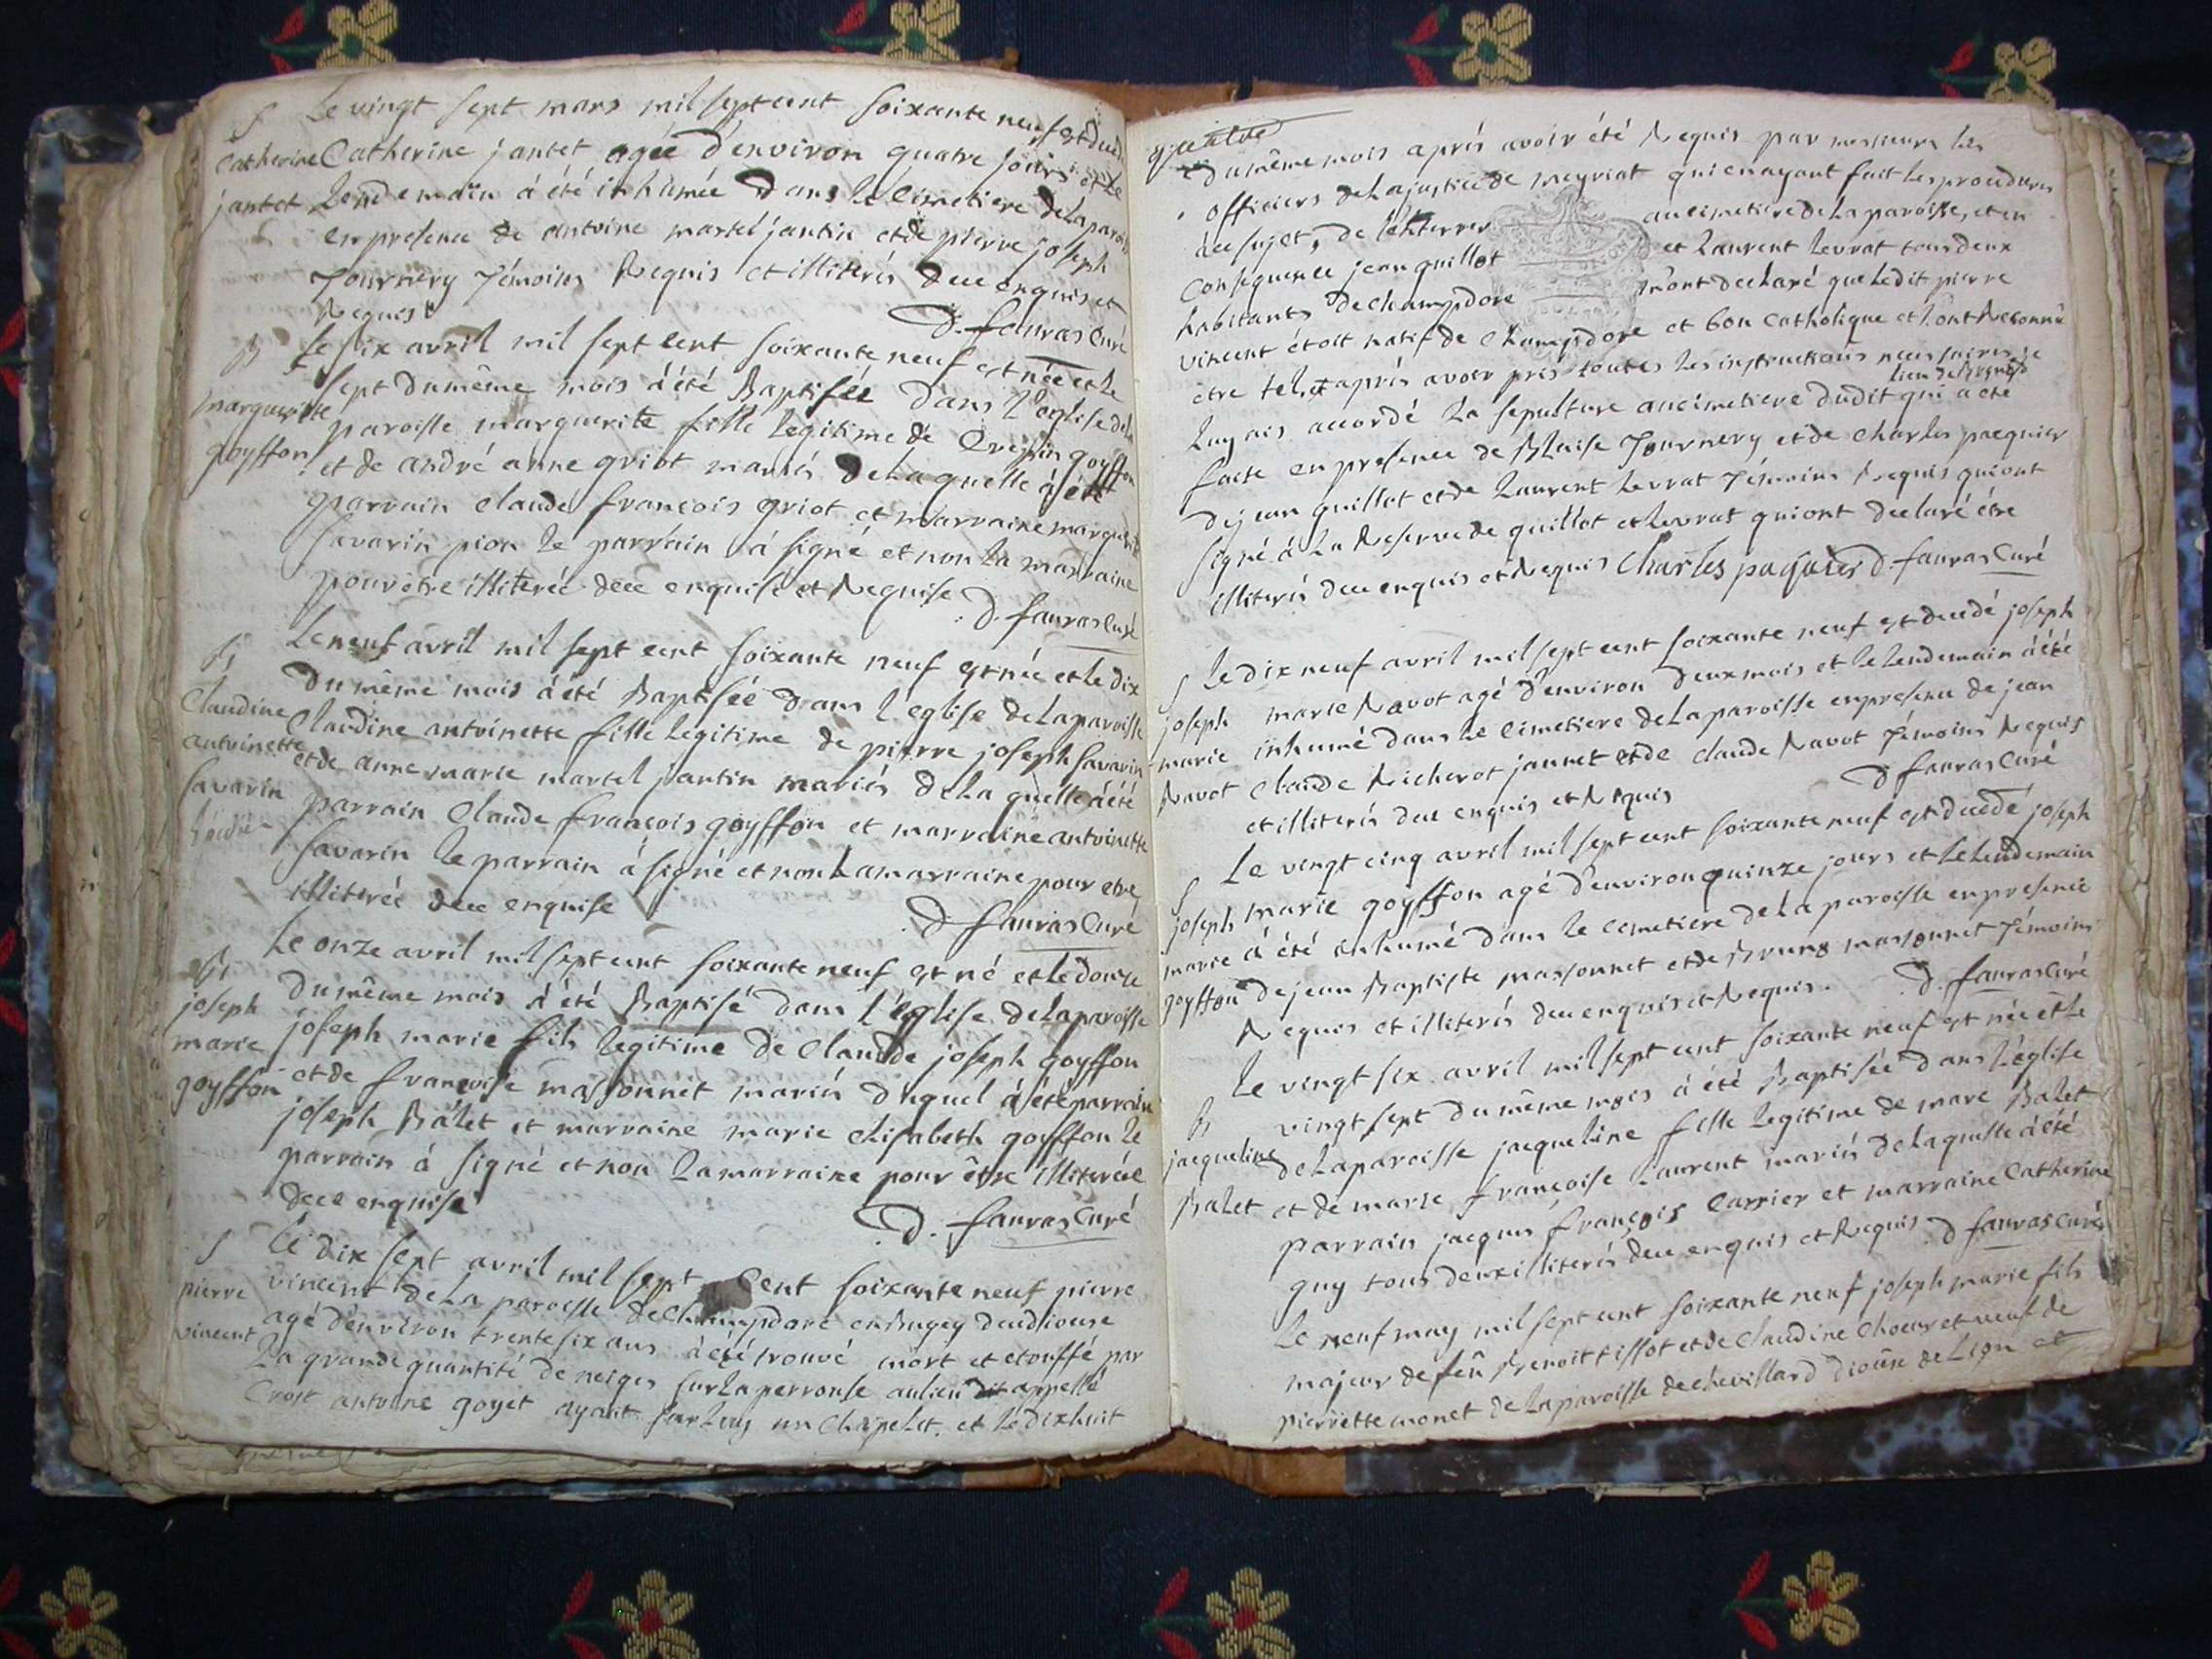 S Le vingt sept mars mil sept cent soixante neuf est
Catherine Catherine jantet agée d'environ quatre jours et le
jantet Lendemain á été inhumée Dans le Cimetiere de la
en presence de antoine martel jantin et de pierre joseph
Tournery Témoins Requis et illiterés de ce enquis et
Requis D. fauras Curé
B Le six avril mil sept cent soixante neuf est née et le
sept du même mois á été Baptisée Dans l'eglise de la
marguerite paroisse marguerite fille legitime de Crepin goyffon
goyffon et de andré anne griot mariés de Laquelle á été
parrain claude françois griot et marraine marguerite
Savarin pion le parrain á signé et non La marraine
pour être illiterée de ce enquise et Requise. D. fauras Curé
B Le neuf avril mil sept cent soixante neuf est née et le dix
Du même mois á été Baptisée Dans l'eglise de La paroisse
Claudine Claudine antoinette fille legitime de pierre joseph Savarin
antoinette et de anne marie martel jantin mariés de La quelle á été
Savarin parrain Claude françois goyffon et marraine antoinette
Savarin le parrain á signé et non La marraine pour etre
illiterée de ce enquise D fauras Curé
B Le onze avril mil sept cent soixante neuf est né et le douze
joseph Du même mois á été Baptisé Dans l'Eglise de La paroisse
marie joseph marie fils legitime de Claude joseph goyffon
goyffon et de françoise massonnet mariés Duquel á été parrain
joseph Balet et marraine marie elisabeth goyffon le
parrain á signé et non La marraine pour être illiterée
de ce enquise D. fauras Curé
S Le dix sept avril mil sept Cent soixante neuf pierre
pierre vincent de La paroisse de Champdore en Bugey
vincent agé d'environ trente six ans á été trouvé mort et etouffé par
La grande quantité de neiges sur La perrouse au lieu dit appellé
Croit antoine goyet ayant sur Luy un Chapelet. et le dixhuit
du même mois aprés avoir été Requis par messieurs les
officiers de La justice de meyriat qui en ayant fait les procedures
á ce sujet, de l'enterrer au cimetiere de La paroisse, et en
Consequence jean guillot et Laurent Levrat tous deux
habitants de champdore m'ont declaré que Ledit pierre
vincent étoit natif de Champdore et bon Catholique et L'ont Reconnû
être tel, et aprés avoir pris toutes Les instructions necessaires je
Luy ais accordé La sepulture au cimetiere dudit lieu qui a été
faite en presence de Blaise Tournery et de Charles pacquier
de jean guillot et de Laurent Levrat Témoins Requis qui ont
signé á La Reserve de guillot et Levrat qui ont declaré être
illiterés de ce enquis et Requis Charles paquier D. fauras Curé
S Le dix neuf avril mil sept cent soixante neuf est decedé joseph
joseph marie Navot agé d'environ Deux mois et le Lendemain á été
marie inhumé dans le Cimetiere de La paroisse en presence de jean
Navot Claude Richerot jannet et de Claude Navot Témoins Requis
et illiterés de ce enquis et Requis D fauras Curé
S Le vingt cinq avril mil sept cent soixante neuf est decedé joseph
joseph marie goyffon agé d'environ quinze jours et le Lendemain
marie á été inhumé dans le Cimetiere de La paroisse en presence
goyffon de jean Baptiste massonnet et de Bruno massonnet Témoins
Requis et illiterés de ce enquis et Requis. D. fauras Curé
B Le vingt six avril mil sept cent soixante neuf est née et le
vingt sept du même mois á été Baptisée Dans l'église
jacqueline de La paroisse jacqueline fille legitime de marc Balet
Balet et de marie françoise Laurent mariés de Laquelle á été
parrain jacques françois Carrier et marraine Catherine
guy tous deux illiterés de ce enquis et Requis D fauras Curé
Le neuf may mil sept cent soixante neuf joseph marie fils
majeur de feû Benoit tissot et de Claudine Choeur et veuf de
pierrette monet de La paroisse de chevillard dioèse de Lion et